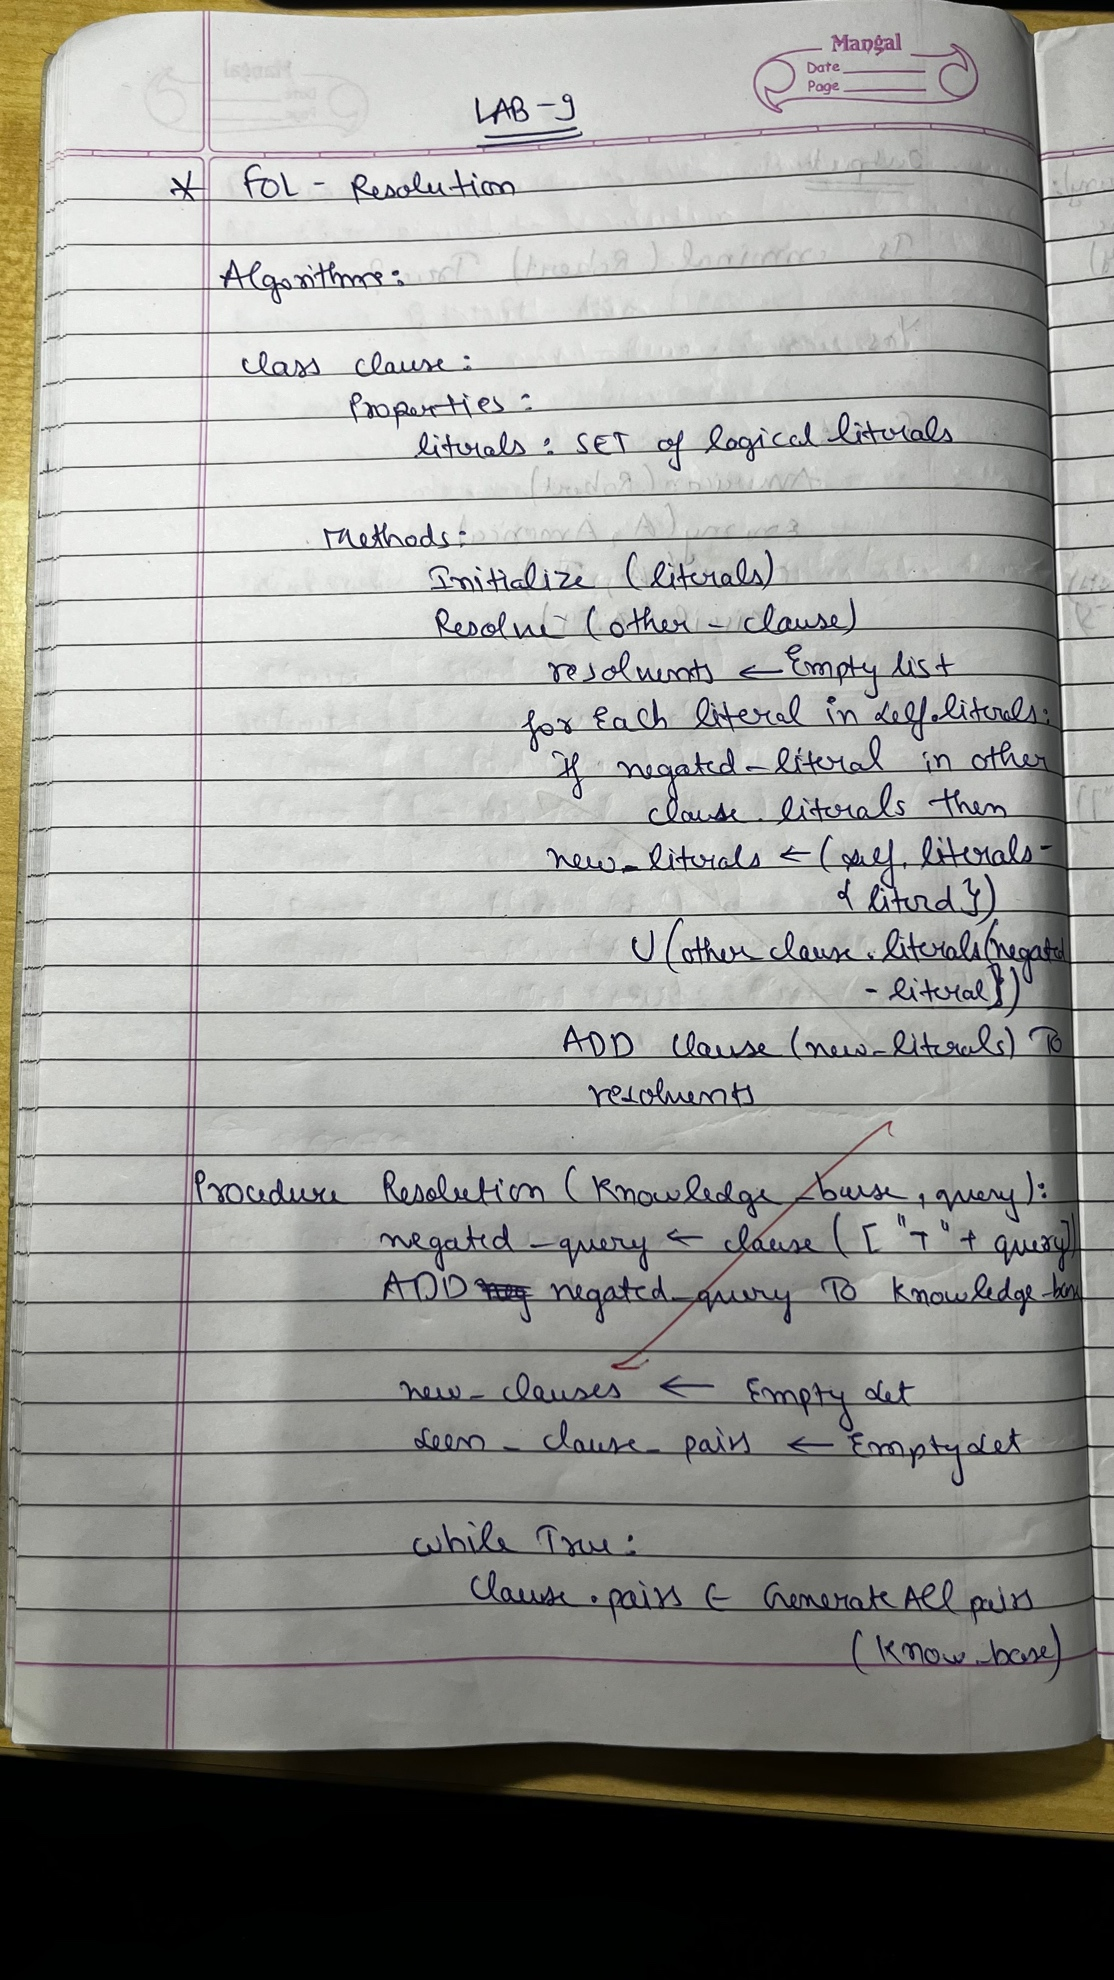 Mangal
Date
Page
LAB-9
* FOL - Resolution
Algorithm:
class clause:
Properties:
literals: SET of logical literals
Methods:
Initialize (literals)
Resolve (other-clause)
resolvents ← Empty list
for Each literal in self.literals:
If negated-literal in other
clause. literals then
new_literals ← (self. literals-
{literal})
U (other clause. literals(negated
- literal})
ADD clause (new-literals) To
resolvents
Procedure Resolution (Knowledge-base, query):
negated-query ← clause (["¬" + query]
ADD negated-query To Knowledge-base
new-clauses ← Empty set
seen-clause-pairs ← Empty set
while True:
clause.pairs ← Generate All pairs
(Know-base)